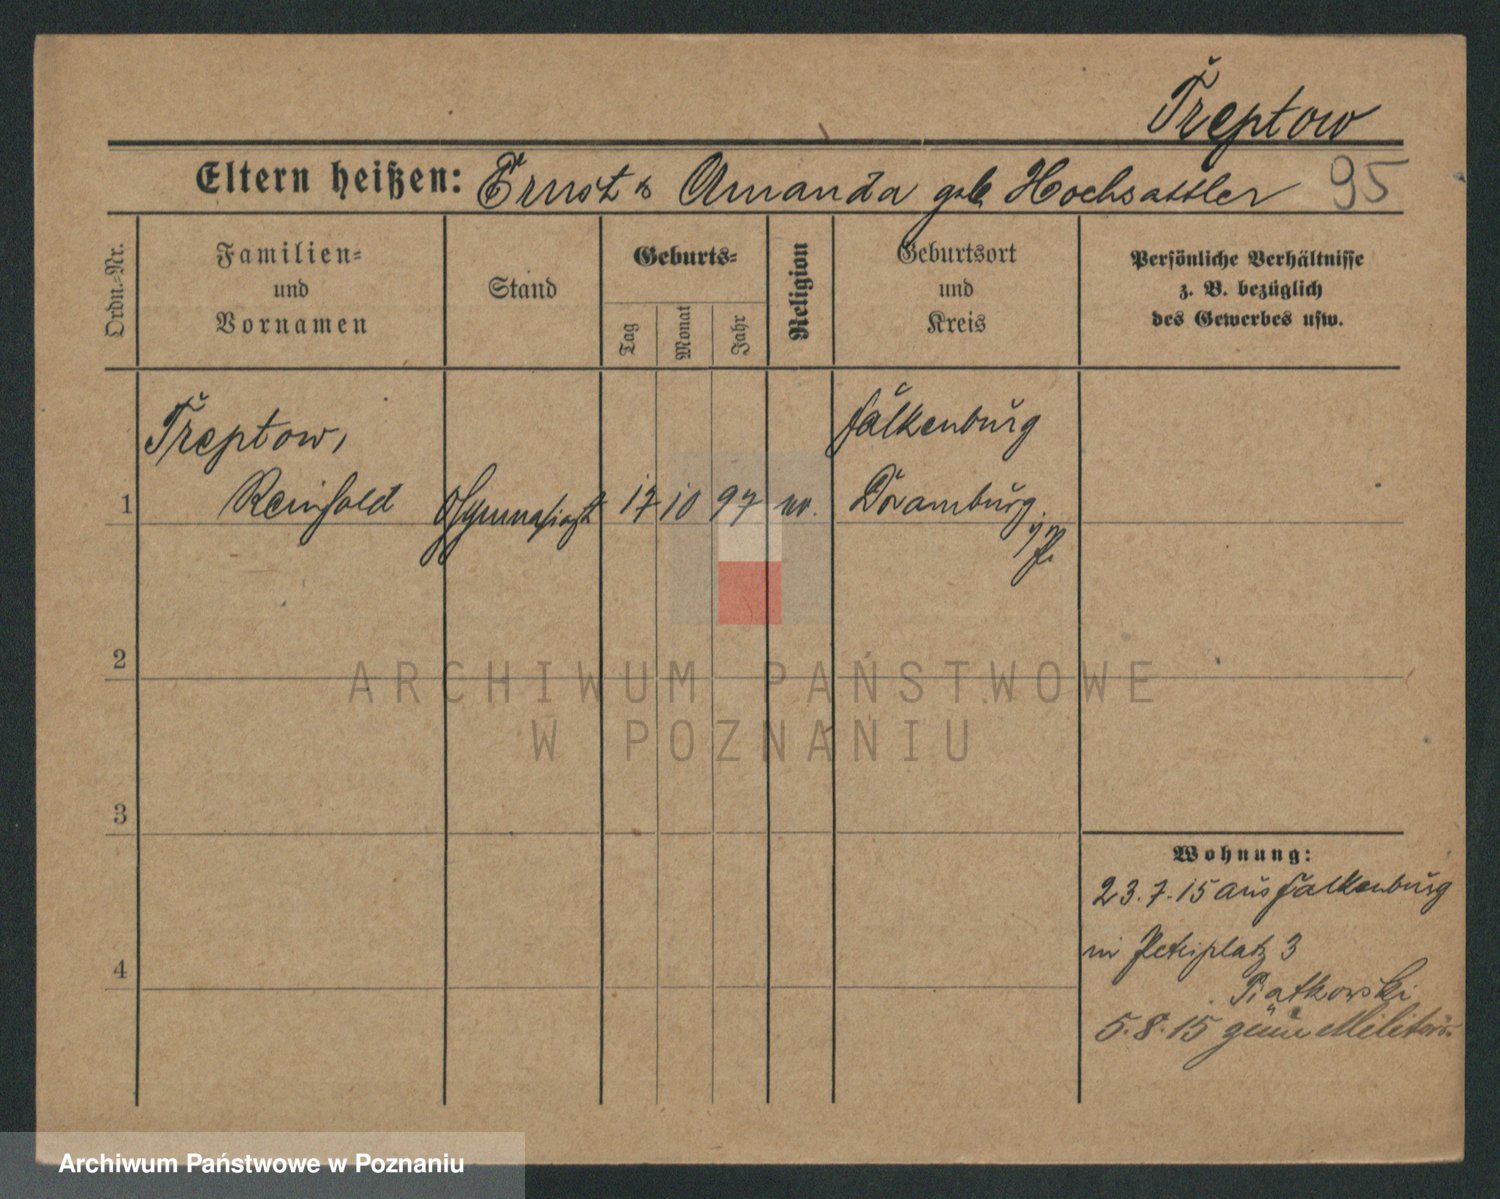 Treptow
Eltern heißen: Ernst & Amanda geb Hochsattler 95
Ordn.-Nr.
Familien-
und
Vornamen
Stand
Geburts-
Tag
Monat
Jahr
Religion
Geburtsort
und
Kreis
Persönliche Verhältnisse
z. B. bezüglich
des Gewerbes usw.
Treptow, Falkenburg
1 Reinhold Gymnasiast 17 10 97 ev. Dramburg
i/P.
2
ARCHIWUM PAŃSTWOWE
W POZNANIU
3
Wohnung:
23.7.15 aus Falkenburg
4 Petriplatz 3
Piątkowski
5.8.15 Militär
Archiwum Państwowe w Poznaniu